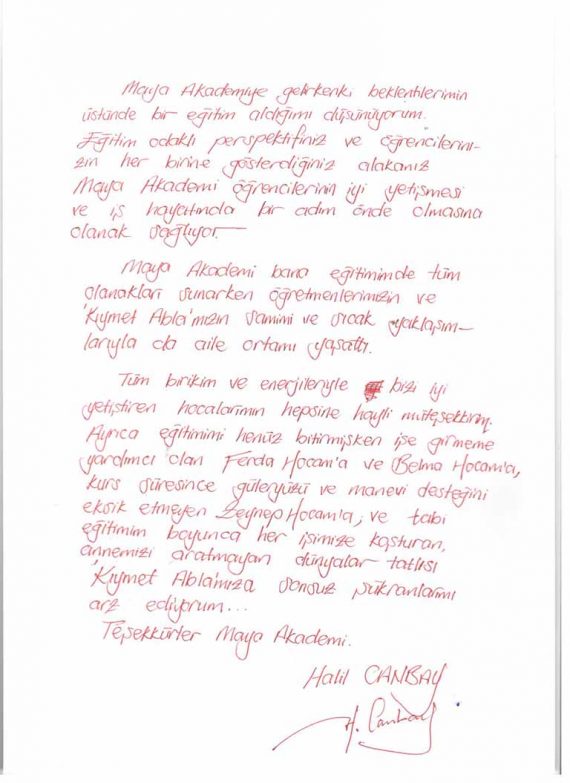 Maya Akademiye gelirkenki beklentilerimin
üstünde bir eğitim aldığımı düşünüyorum.
Eğitim odaklı perspektifiniz ve öğrencilerini-
zin her birine gösterdiğiniz alakanız
Maya Akademi öğrencilerinin iyi yetişmesi
ve iş hayatında bir adım önde olmasına
olanak sağlıyor.
Maya Akademi bana eğitimimde tüm
olanakları sunarken öğretmenlerimizin ve
'Kıymet Abla'mızın samimi ve sıcak yaklaşım-
larıyla da aile ortamı yaşattı.
Tüm birikim ve enerjileriyle bizi iyi
yetiştiren hocalarımın hepsine hayli müteşekkirim.
Ayrıca eğitimimi henüz bitirmişken işe girmeme
yardımcı olan Ferda Hocam'a ve Belma Hocam'a,
kurs süresince güleryüzü ve manevi desteğini
eksik etmeyen Zeynep Hocam'a; ve tabi
eğitimim boyunca her işimize koşturan,
annemizi aratmayan dünyalar tatlısı
'Kıymet Abla'mıza sonsuz şükranlarımı
arz ediyorum...
Teşekkürler Maya Akademi.
Halil CANBAY
H. Canbay